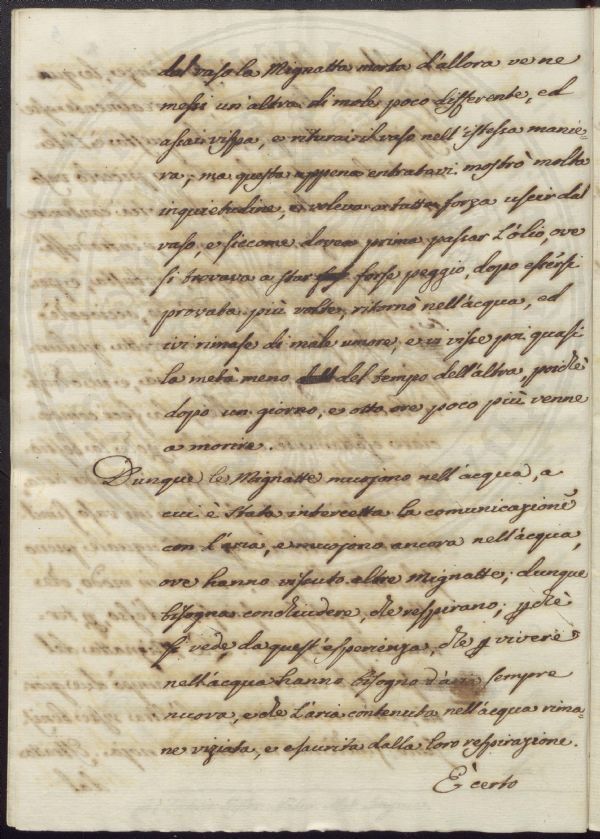 dal vaso la Mignatta morta d'allora ve ne
messi un'altra di mole poco differente, ed
assai vispa, e riturai il vaso nell'istessa manie-
ra; ma questa appena entratavi mostrò molta
inquietudine, e voleva a tutta forza uscir dal
vaso, e siccome dovea prima passar l'ólio, ove
si trovava a star forse peggio, dopo essersi
provata più volte, ritornò nell'acqua, ed
ivi rimase di male umore, e vi visse poi quasi
la metà meno del tempo dell'altra, poichè
dopo un giorno, e otto ore poco più venne
a morire.
Dunque le Mignatte muojono nell'acqua, a
cui è stata intercetta la comunicazione
con l'aria, e muojono ancora nell'acqua,
ove hanno vissuto altre Mignatte; dunque
bisogna conchiudere, che respirano; pchè
si vede da quest'esperienza, che p vivere
nell'acqua hanno bisogno d'aria sempre
nuova, e che l'aria contenuta nell'acqua rima-
ne viziata, e esaurita dalla loro respirazione.
È certo